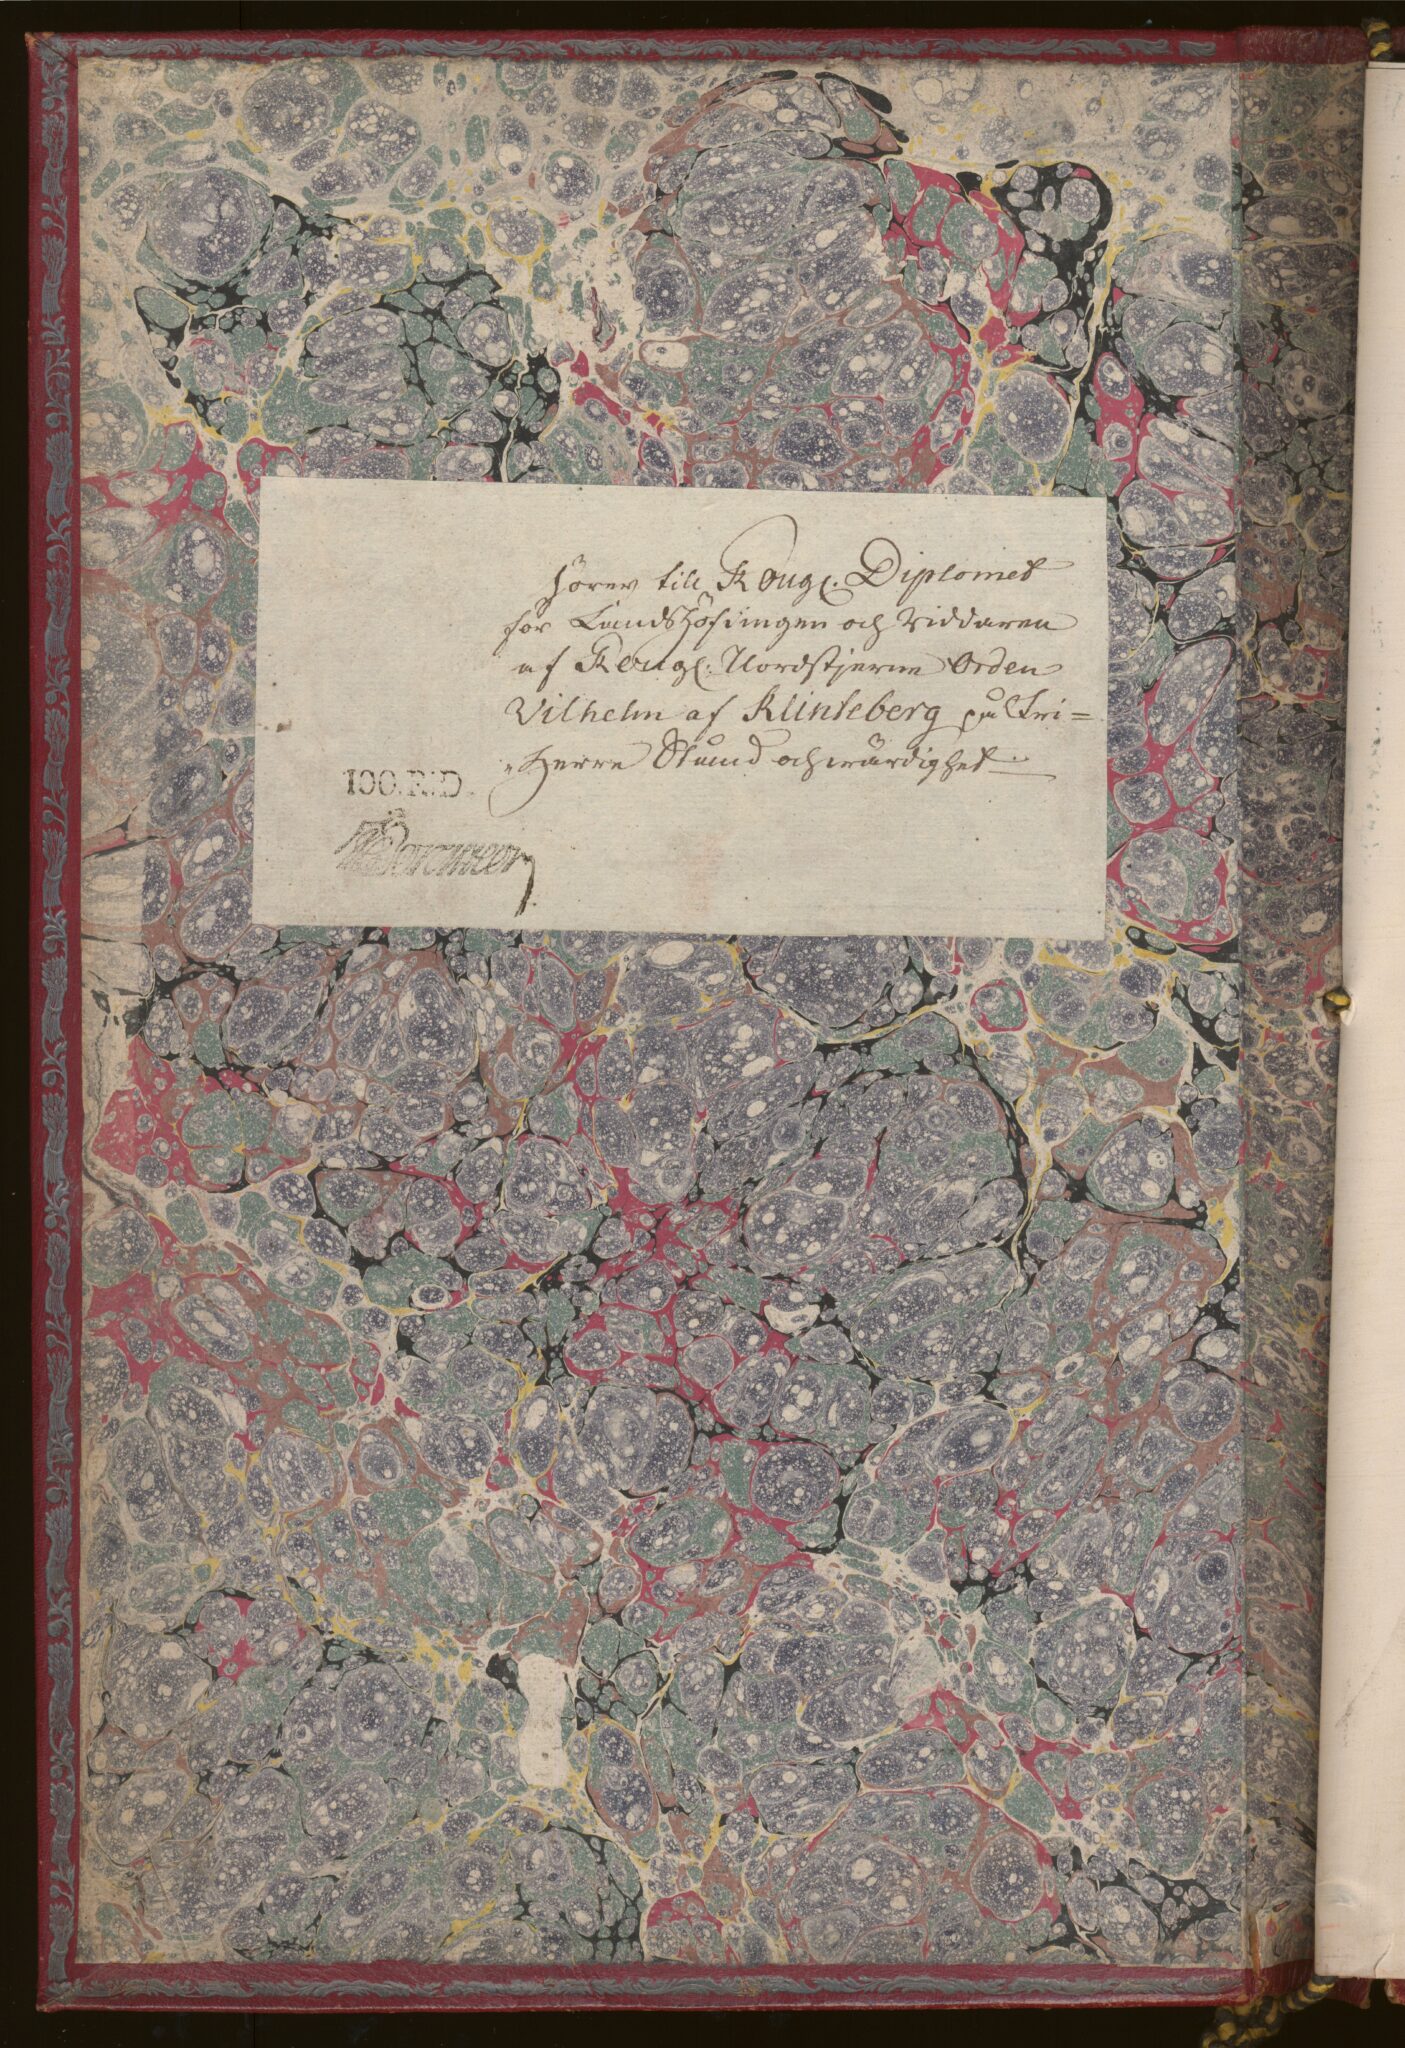 hörer till Kongl. Diplomet
för Landshöfdingen och Riddaren
af Kongl. Nordstjerne Orden
Vilhelm af Klinteberg på Fri=
Herre Stånd och wärdighet
100. R:D.